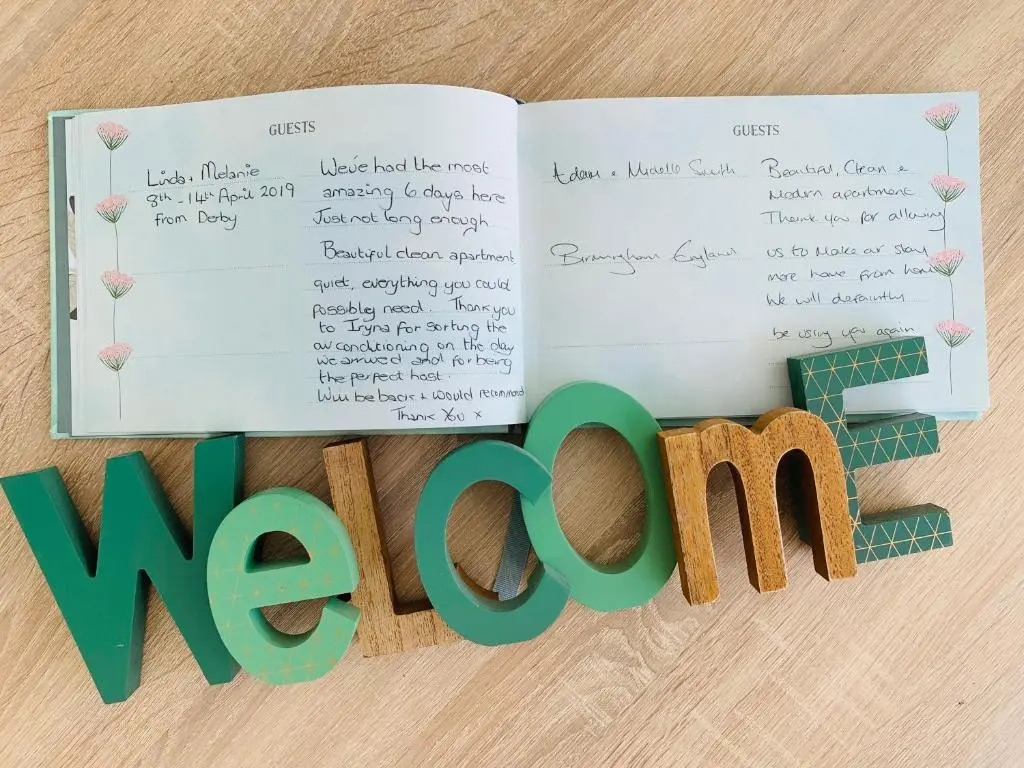 GUESTS
Linda + Melanie
8th - 14th April 2019
from Derby
We've had the most
amazing 6 days here
Just not long enough
Beautiful clean apartment
quiet, everything you could
possibley need. Thank you
to Iryna for sorting the
air conditioning on the day
we arrived and for being
the perfect host.
Will be back + would recommend
Thank You x
GUESTS
Adam & Michelle Smith
Birmingham England
Beautiful, Clean &
Modern apartment
Thank you for allowing
us to make our stay
more home from home
We will defiantly
be using you again
WeLCOmE